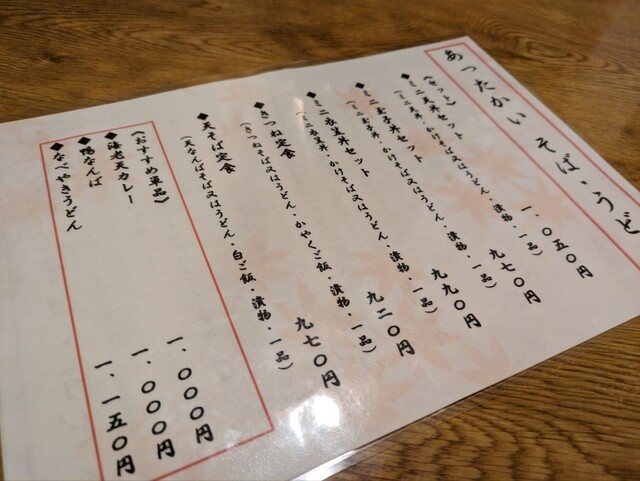 あったかい そば・うどん
《セット》
◆ミニ天丼セット
(ミニ天丼・かけそば又はうどん・漬物・一品)
一、〇五〇円
◆ミニ玉子丼セット
(ミニ玉子丼・かけそば又はうどん・漬物・一品)
九七〇円
◆ミニ衣笠丼セット
(ミニ衣笠丼・かけそば又はうどん・漬物・一品)
九九〇円
◆きつね定食
(きつねそば又はうどん・かやくご飯・漬物・一品)
九二〇円
◆天そば定食
(天なんばそば又はうどん・白ご飯・漬物・一品)
九七〇円
《おすすめ単品》
◆海老天カレー
一、〇〇〇円
◆鴨なんば
一、〇〇〇円
◆なべやきうどん
一、一五〇円